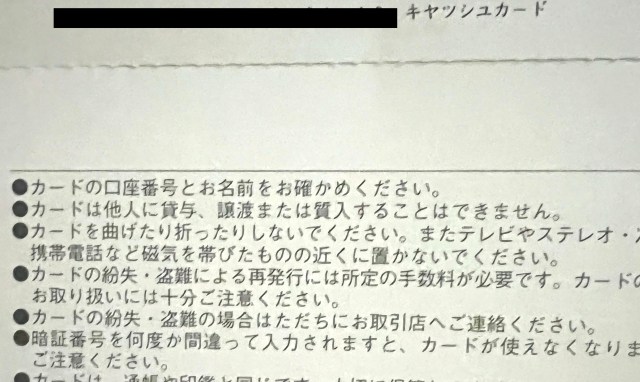 キヤツシユカード
●カードの口座番号とお名前をお確かめください。
●カードは他人に貸与、譲渡または質入することはできません。
●カードを曲げたり折ったりしないでください。またテレビやステレオ・
携帯電話など磁気を帯びたものの近くに置かないでください。
●カードの紛失・盗難による再発行には所定の手数料が必要です。カードの
お取り扱いには十分ご注意ください。
●カードの紛失・盗難の場合はただちにお取引店へご連絡ください。
●暗証番号を何度か間違って入力されますと、カードが使えなくなりま
ご注意ください。
●カードは、通帳や印鑑と同じです。大切に保管